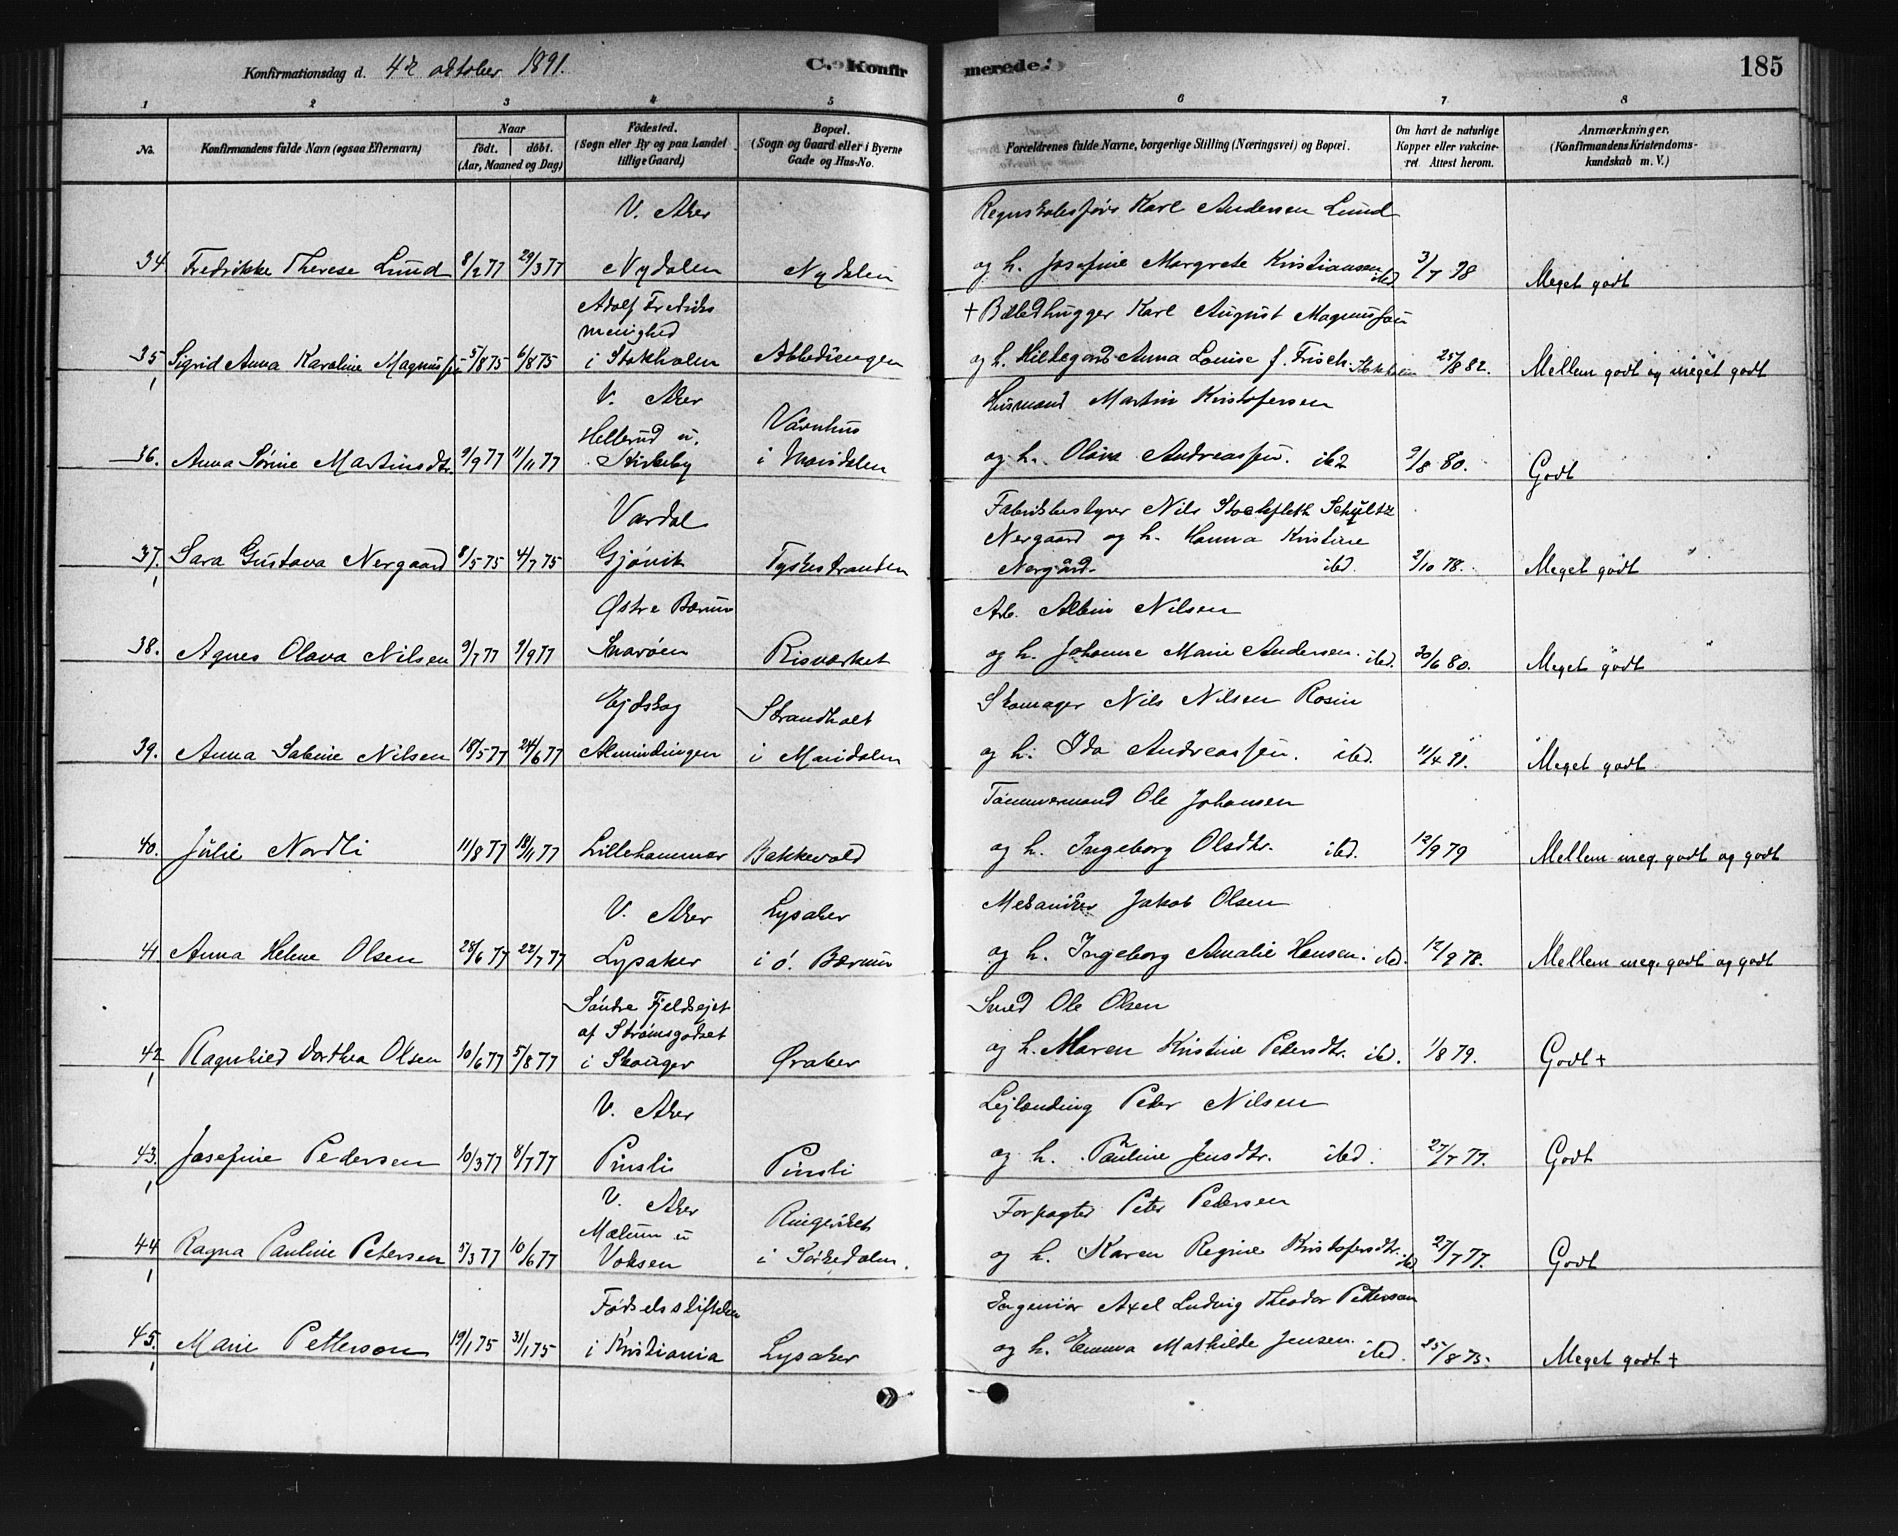 Konfirmationsdag d. 4de oktober 1891.
C. Konfirmerede.
185
1 2 3 4 5 6 7 8
No.
Konfirmandens fulde Navn (ogsaa Efternavn)
Naar
født. døbt.
(Aar, Maaned og Dag)
Fødested.
(Sogn eller By og paa Landet
tillige Gaard)
Bopæl.
(Sogn og Gaard eller i Byerne
Gade og Hus-No.
Forældrenes fulde Navne, borgerlige Stilling (Næringsvei) og Bopæl.
Om havt de naturlige
Kopper eller vakcine-
ret Attest herom.
Anmærkninger.
(Konfirmandens Kristendoms-
kundskab m. V.)
V. Aker Regnskabsfører Karl Andersen Lund
34 Fredrikke Therese Lund 8/2 77 29/3 77 Nydalen Nydalen og h. Josefine Margrete Kristiansen ibd 3/7 78 Meget godt
Adolf Fredriks
menighed + Billedhugger Karl August Magnussen
35 Sigrid Anna Karoline Magnussen 5/8 75 6/8 75 i Stokholm Abbediengen og h. Hildegard Anna Louise f. Frisch. Stokholm 25/8 82. Mellem godt og meget godt
V. Aker Husmand Martin Kristofersen
Hellerud u. Vaanhus
36. Anna Sørine Martinsdtr. 9/9 77 11/11 77 Kirkeby i Maridalen og h. Olava Andreassen. ibd 9/8 80. Godt
Vardal Fabrikbestyrer Nils Stockfleth Schultz
Nergaard og h. Hanna Kristine
37. Sara Gustava Nergaard 8/5 75 4/7 75 Gjøvik Tyskestranden Nergård ibd. 2/10 78. Meget godt
Østre Bærum Arb. Albin Nilsen
38. Agnes Olava Nilsen 9/7 77 9/9 77 Snarøen Risværket og h. Johanne Marie Andersen. ibd. 30/6 80. Meget godt
Ejdskog Strandholt Skomager Nils Nilsen Rosin
39. Anna Sabine Nilsen 18/5 77 24/6 77 Almindingen i Maridalen og h. Ida Andreassen. ibd. 11/4 91. Meget godt
Tømmermand Ole Johansen
40. Julie Nordli 11/8 77 18/11 77 Lillehammer Bakkevold og h. Ingeborg Olsdtr. ibd. 12/9 79 Mellem meg. godt og godt
V. Aker Lysaker Mekaniker Jakob Olsen
41 Anna Helene Olsen 28/6 77 22/7 77 Lysaker i ø. Bærum og h. Ingeborg Amalie Hansen. ibd. 12/9 78. Mellem meg. godt og godt
Søndre Fjeldsejet
af Strømsgodset Smed Ole Olsen
42 Ragnhild Dorthea Olsen 10/6 77 5/8 77 i Skouger Øraker og h. Maren Kristine Pedersdtr. ibd. 1/8 79. Godt +
V. Aker Lejlænding Peder Nilsen
43. Josefine Pedersen 10/3 77 8/7 77 Pinsli Pinsli og h. Pauline Jensdtr. ibd. 27/7 77. Godt
V. Aker
Mælum u Ringeriket Forpagter Peter Pedersen
44 Ragna Pauline Petersen 5/3 77 10/6 77 Voksen i Sørkedalen. og h. Karen Regine Kristofersdtr. ibd 27/7 77. Godt
Fødselsstiftelsen Ingeniør Axel Ludvig Theodor Petterson
45. Marie Petterson 19/1 75 31/1 75 i Kristiania Lysaker og h. Emma Mathilde Jensen. ibd. 25/8 75. Meget godt +